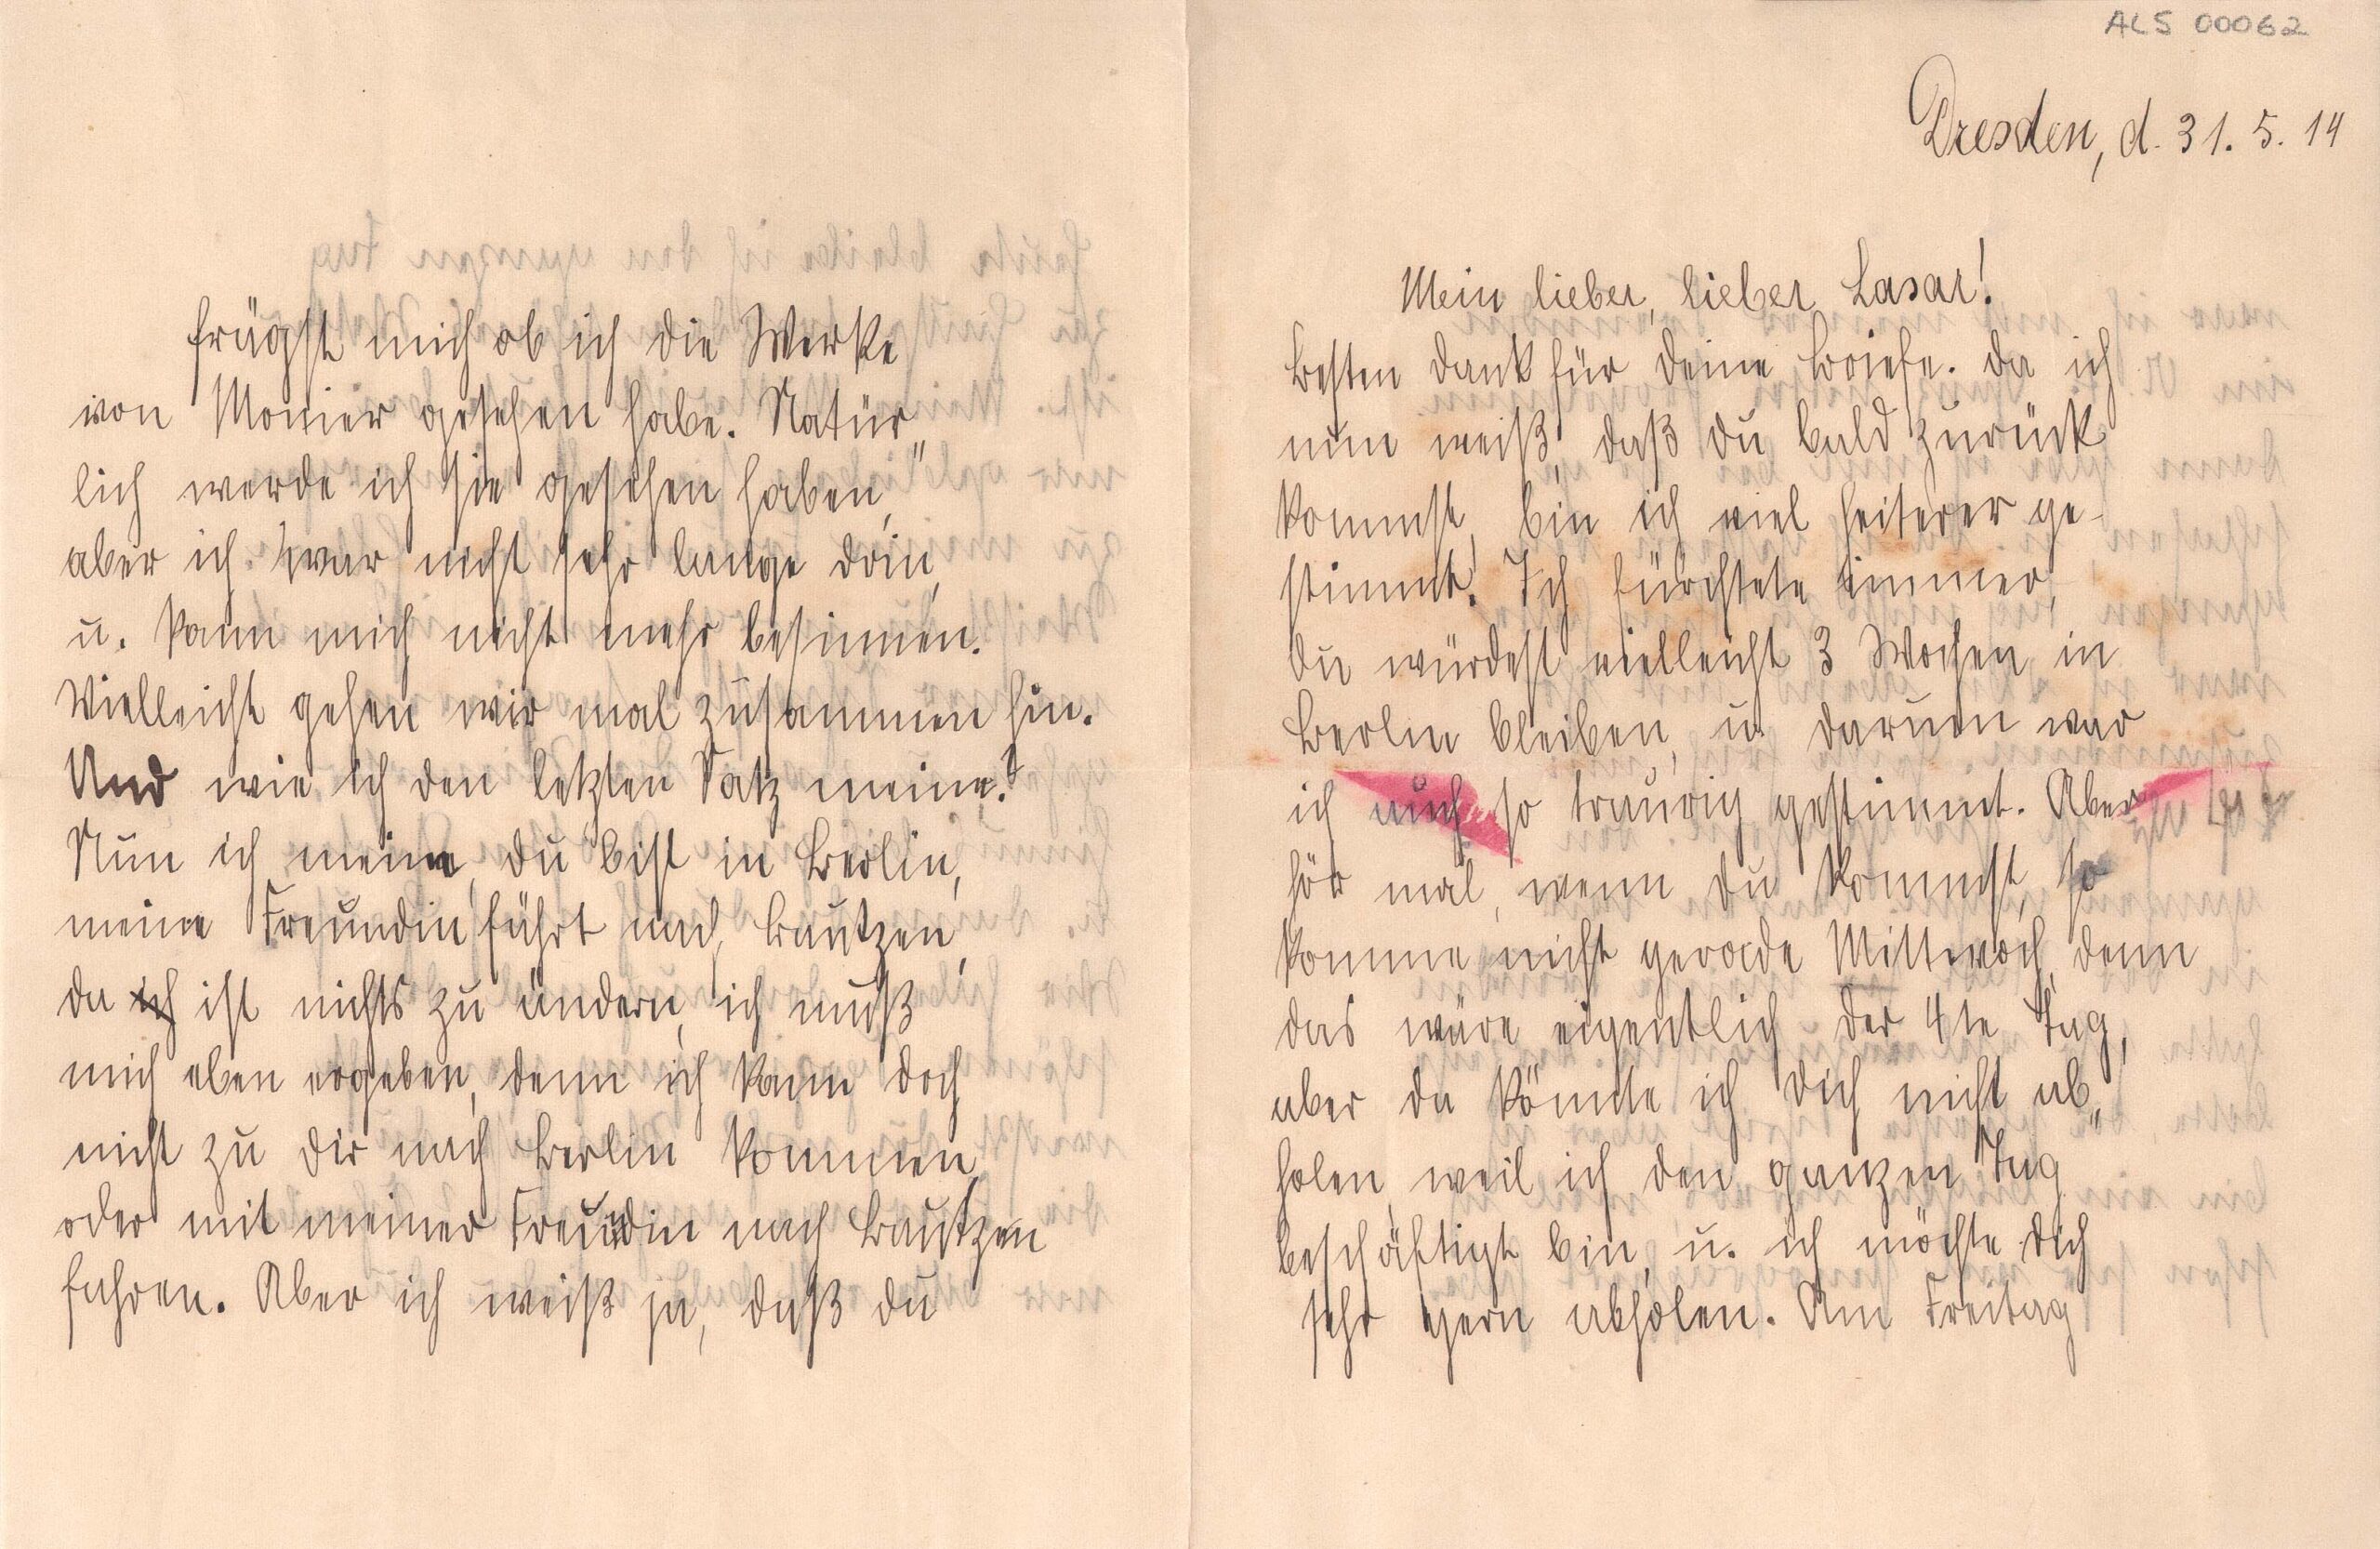 ALS 00062
Dresden, d. 31. 5. 14
Mein lieber, lieber Lasar!
Besten Dank für Deine Briefe. Da ich
nun weiß, daß Du bald zurück
kommst, bin ich viel heiterer ge-
stimmt. Ich fürchtete immer,
Du würdest vielleicht 3 Wochen in
Berlin bleiben, u. darum war
ich auch so traurig gestimmt. Aber
hör mal, wenn Du kommst, so
komme nicht gerade Mittwoch, denn
das wäre eigentlich der 4te Tag,
aber da könnte ich Dich nicht ab„
holen, weil ich den ganzen Tag
beschäftigt bin, u. ich möchte Dich
sehr gern abholen. Am Freitag
frägst mich ob ich die Werke
von Monier gesehen habe. Natür„
lich werde ich sie gesehen haben,
aber ich war nicht sehr lange drin,
u. kann mich nicht mehr besinnen.
Vielleicht gehen wir mal zusammen hin.
Und wie ich den letzten Satz meine?
Nun ich meine, Du bist in Berlin,
meine Freundin fährt nach Bautzen,
da ich ist nichts zu ändern, ich muß
mich eben ergeben, denn ich kann doch
nicht zu Dir nach Berlin kommen,
oder mit meiner Freundin nach Bautzen
fahren. Aber ich weiß ja, daß Du